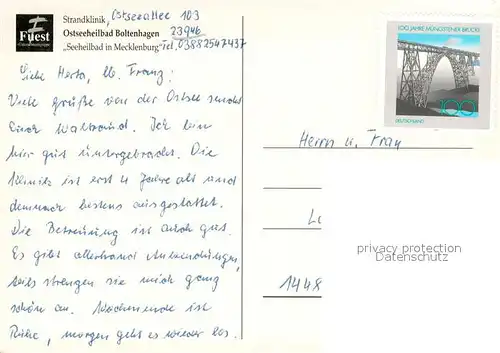 Strandklinik, Ostseeallee 103
Ostseeheilbad Boltenhagen 23946
„Seeheilbad in Mecklenburg" Tel. 03882547437
Fuest
100 JAHRE MÜNGSTENER BRÜCKE
100
DEUTSCHLAND
Liebe Herta, lb. Franz!
Viele Grüße von der Ostsee sendet
Euch Waltraud. Ich bin
hier gut untergebracht. Die
Klinik ist erst 4 Jahre alt und
demnach bestens ausgestattet.
Die Betreuung ist auch gut.
Es gibt allerhand Anwendungen,
teils strengen sie mich ganz
schön an. Wochenende ist
Ruhe, morgen geht es wieder los.
Herrn u. Frau
L
1448
privacy protection
Datenschutz